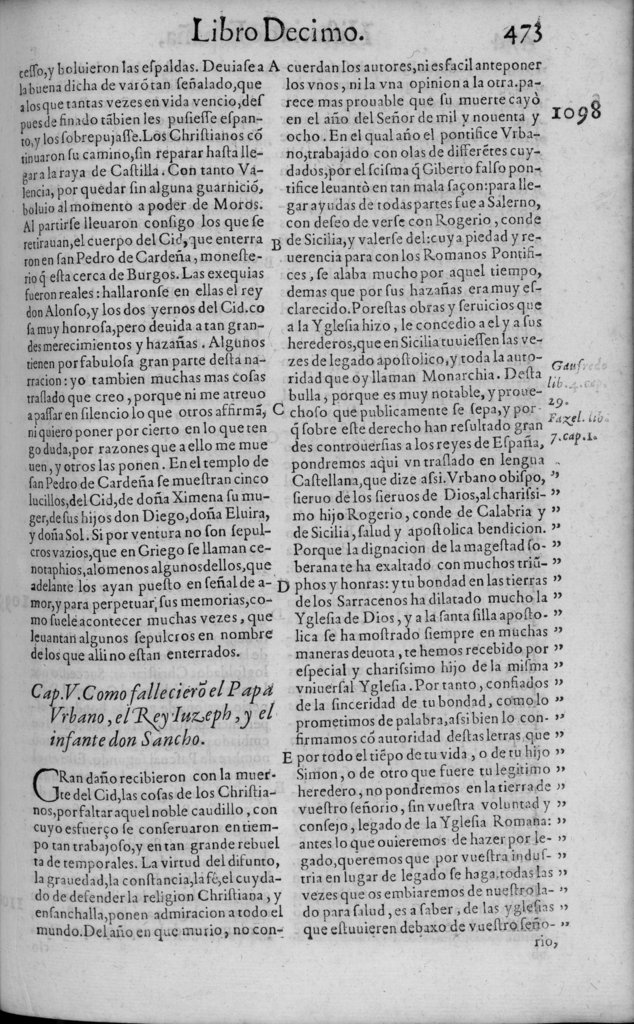 Libro Decimo. 473
cesso, y boluieron las espaldas. Deuiase a
la buena dicha de varō tan señalado, que
a los que tantas vezes en vida vencio, des
pues de finado tābien les pusiesse espan-
to, y los sobrepujasse. Los Christianos cō
tinuaron su camino, sin reparar hasta lle-
gar a la raya de Castilla. Con tanto Va-
lencia, por quedar sin alguna guarnició,
boluio al momento a poder de Moros.
Al partirse lleuaron consigo los que se
retirauan, el cuerpo del Cid, que enterra
ron en san Pedro de Cardeña, moneste-
rio q̃ esta cerca de Burgos. Las exequias
fueron reales: hallaronse en ellas el rey
don Alonso, y los dos yernos del Cid. co
sa muy honrosa, pero deuida a tan gran-
des merecimientos y hazañas. Algunos
tienen por fabulosa gran parte desta na-
rracion: yo tambien muchas mas cosas
traslado que creo, porque ni me atreuo
a passar en silencio lo que otros affirmã,
ni quiero poner por cierto en lo que ten
go duda, por razones que a ello me mue
uen, y otros las ponen. En el templo de
san Pedro de Cardeña se muestran cinco
lucillos, del Cid, de doña Ximena su mu-
ger, de sus hijos don Diego, doña Eluira,
y doña Sol. Si por ventura no son sepul-
cros vazios, que en Griego se llaman ce-
notaphios, alomenos algunos dellos, que
adelante los ayan puesto en señal de a-
mor, y para perpetuar sus memorias, co-
mo suele acontecer muchas vezes, que
leuantan algunos sepulcros en nombre
de los que alli no estan enterrados.
Cap. V. Como fallecierō el Papa
Vrbano, el Rey Iuzeph, y el
infante don Sancho.
GRan daño recibieron con la muer-
te del Cid, las cosas de los Christia-
nos, por faltar aquel noble caudillo, con
cuyo esfuerço se conseruaron en tiem-
po tan trabajoso, y en tan grande rebuel
ta de temporales. La virtud del difunto,
la grauedad, la constancia, la fé, el cuyda-
do de defender la religion Christiana, y
ensanchalla, ponen admiracion a todo el
mundo. Del año en que murio, no con-
A
B
C
D
E
cuerdan los autores, ni es facil anteponer
los vnos, ni la vna opinion a la otra. pa-
rece mas prouable que su muerte cayò
en el año del Señor de mil y nouenta y
ocho. En el qual año el pontifice Vrba-
no, trabajado con olas de differētes cuy-
dados, por el scisma q̃ Giberto falso pon-
tifice leuantò en tan mala saçon: para lle-
gar ayudas de todas partes fue a Salerno,
con deseo de verse con Rogerio, conde
de Sicilia, y valerse del: cuya piedad y re-
uerencia para con los Romanos Pontifi-
ces, se alaba mucho por aquel tiempo,
demas que por sus hazañas era muy es-
clarecido. Por estas obras y seruicios que
a la Yglesia hizo, le concedio a el y a sus
herederos, que en Sicilia tuuiessen las ve-
zes de legado apostolico, y toda la auto-
ridad que oy llaman Monarchia. Desta
bulla, porque es muy notable, y proue-
choso que publicamente se sepa, y por-
q̃ sobre este derecho han resultado gran
des controuersias a los reyes de España,
pondremos aqui vn traslado en lengua
Castellana, que dize assi. Vrbano obispo,
sieruo de los sieruos de Dios, al charissi- ”
mo hijo Rogerio, conde de Calabria y ”
de Sicilia, salud y apostolica bendicion. ”
Porque la dignacion de la magestad so- ”
berana te ha exaltado con muchos triū- ”
phos y honras: y tu bondad en las tierras ”
de los Sarracenos ha dilatado mucho la ”
Yglesia de Dios, y a la santa silla aposto- ”
lica se ha mostrado siempre en muchas ”
maneras deuota, te hemos recebido por ”
especial y charissimo hijo de la misma ”
vniuersal Yglesia. Por tanto, confiados ”
de la sinceridad de tu bondad, como lo ”
prometimos de palabra, assi bien lo con- ”
firmamos cō autoridad destas letras que ”
por todo el tiēpo de tu vida, o de tu hijo ”
Simon, o de otro que fuere tu legitimo ”
heredero, no pondremos en la tierra de ”
vuestro señorio, sin vuestra voluntad y ”
consejo, legado de la Yglesia Romana: ”
antes lo que ouieremos de hazer por le- ”
gado, queremos que por vuestra indus- ”
tria en lugar de legado se haga. todas las ”
vezes que os embiaremos de nuestro la- ”
do para salud, es a saber, de las yglesias ”
que estuuieren debaxo de vuestro seño- ”
rio,
1098
Gaufredo
lib. 4. cap.
29.
Fazel. lib.
7. cap. 1.